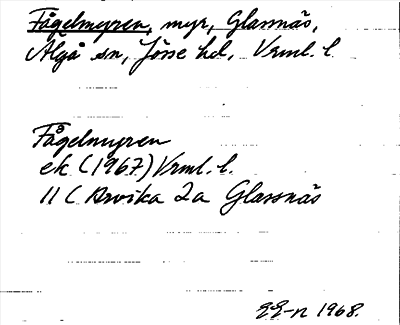 Fågelmyren, myr, Glassnäs,
Älgå sn, Jösse hd, Vrml. l.
Fågelmyren
ek (1967) Vrml. l.
11 C Arvika 2a Glassnäs
1968.